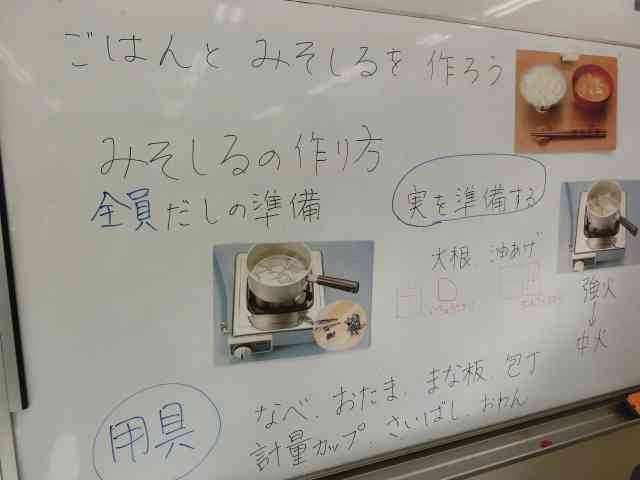 ごはんと みそしるを 作ろう
みそしるの作り方
全員だしの準備
実を準備する
大根 油あげ
強火
↓
中火
用具
なべ、おたま、まな板、包丁
計量カップ、さいばし、おわん